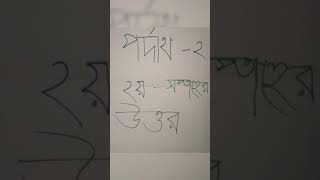 পর্দাথ - ২
২য় - সপ্তাহের
উত্তর